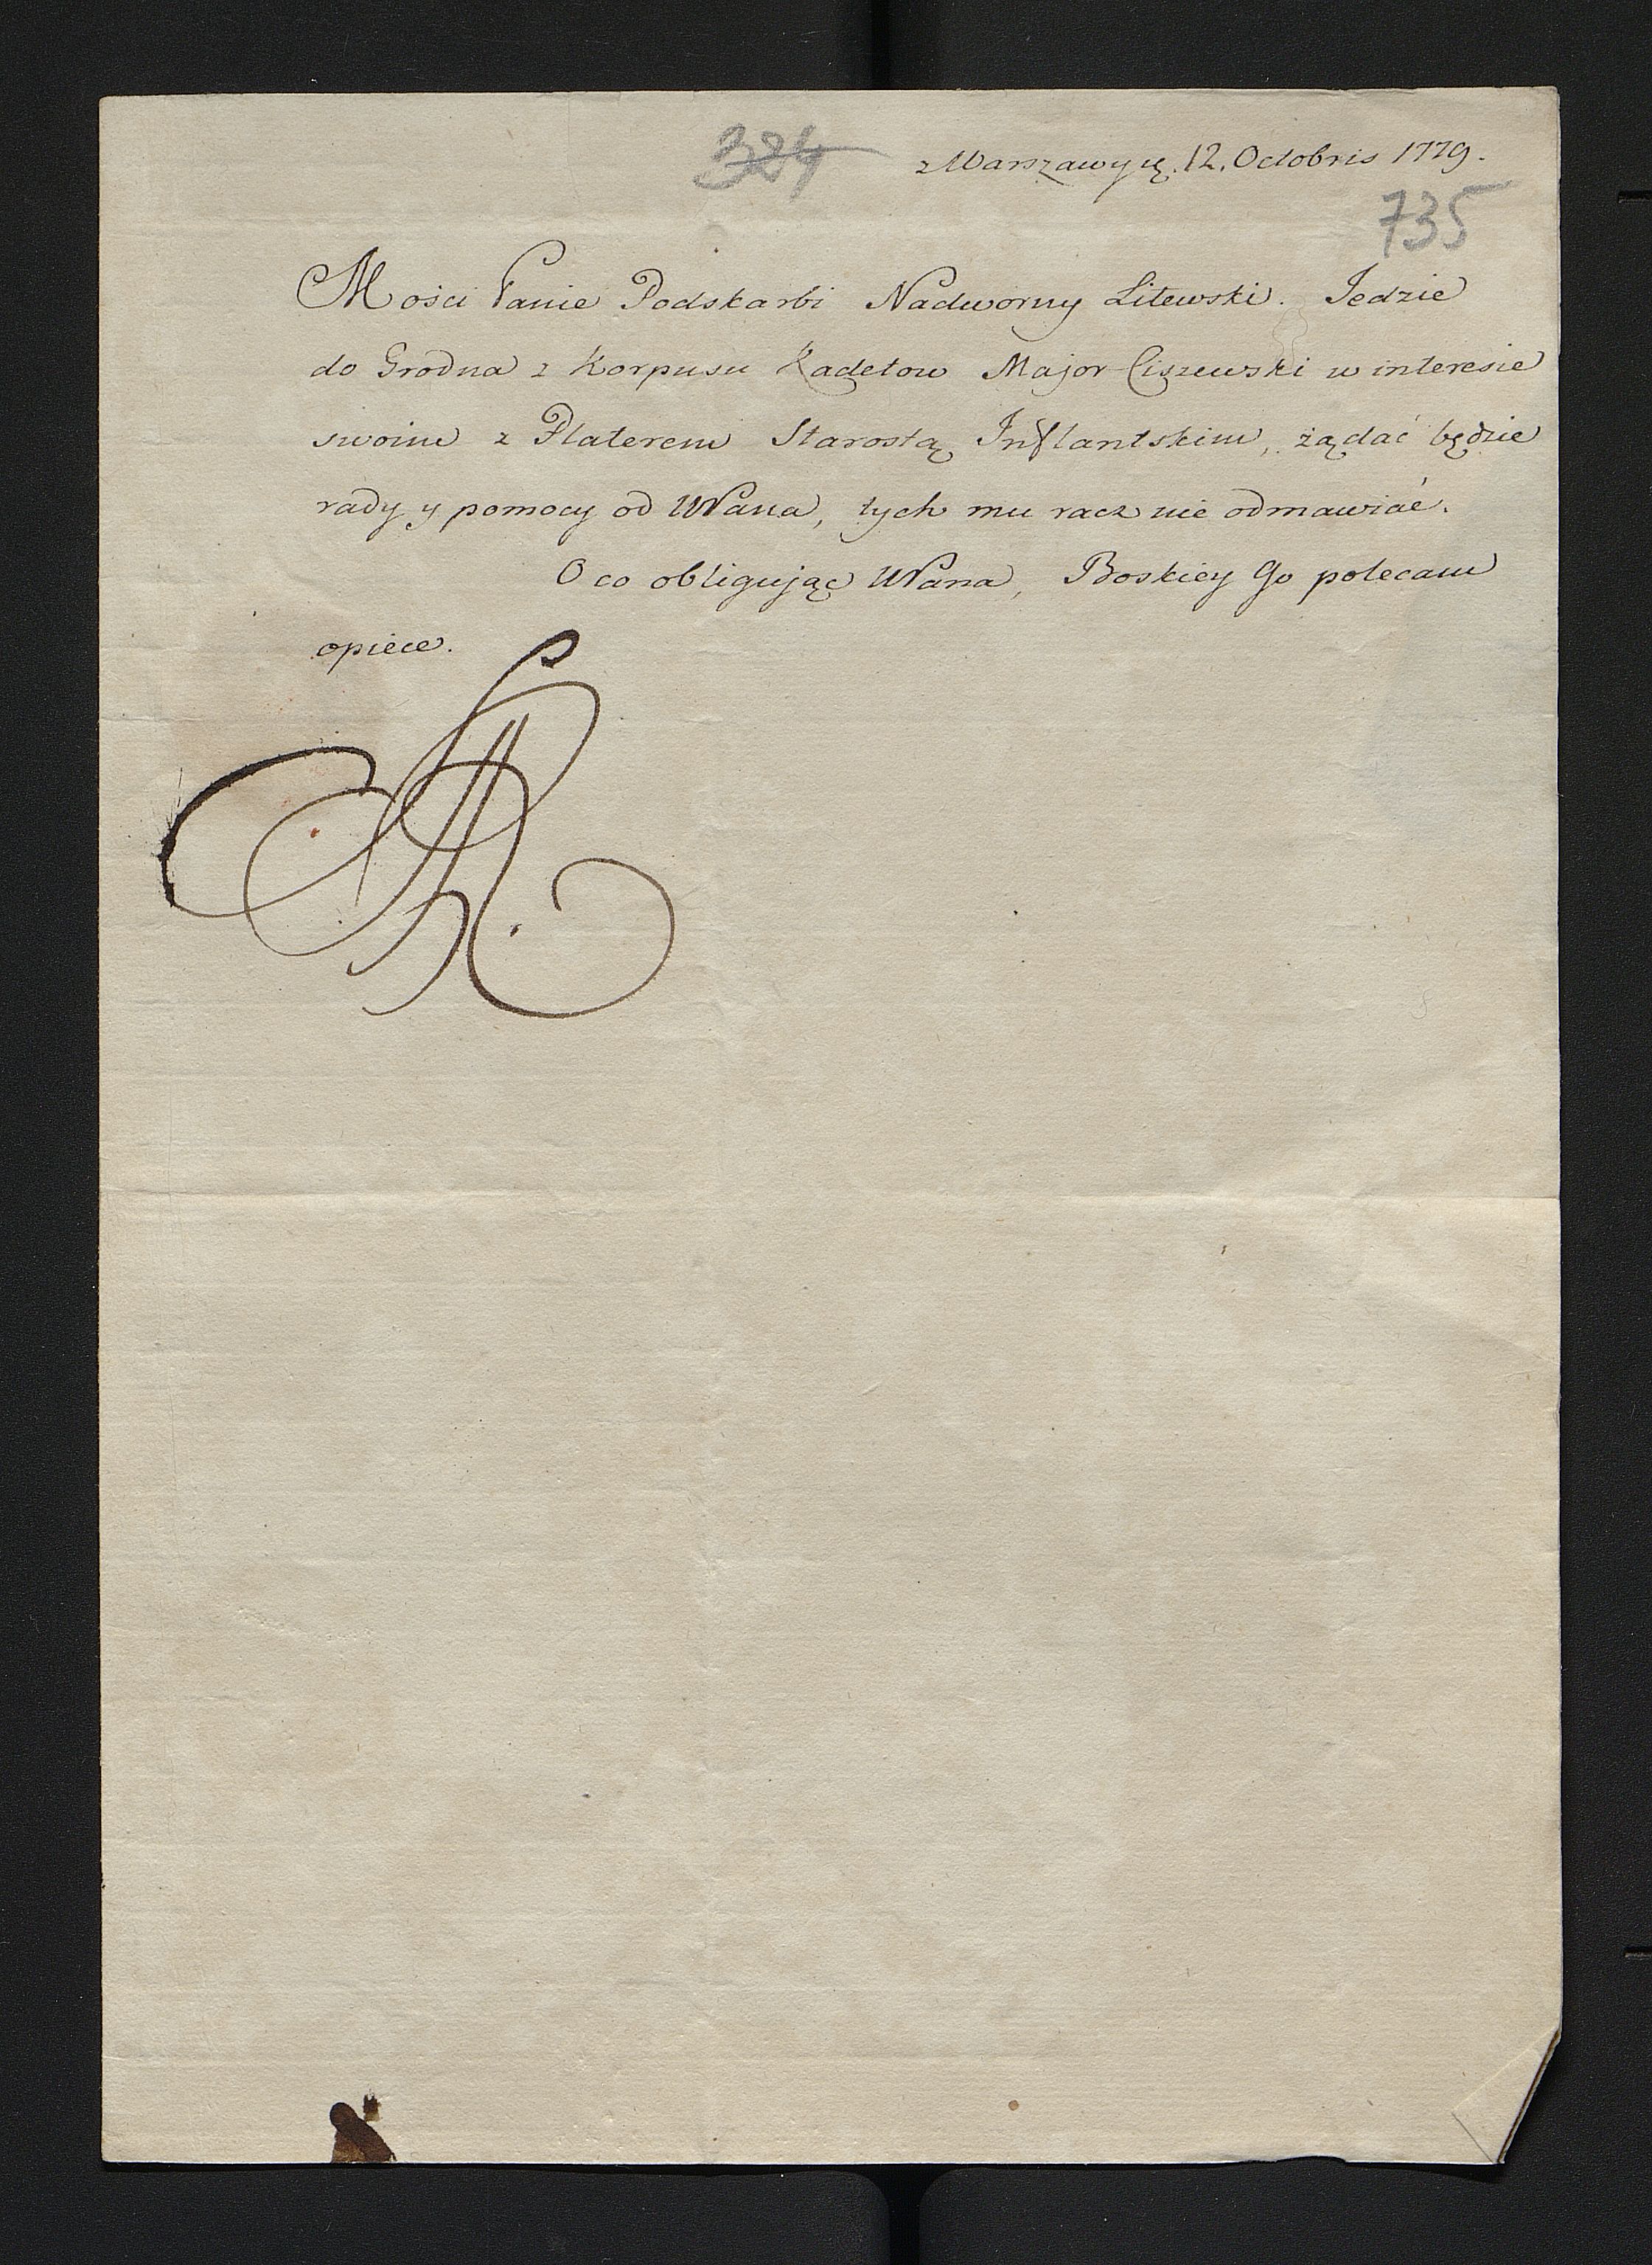 324
z Warszawy 12. Octobris 1779.
735
Mości Panie Podskarbi Nadworny Litewski. Jedzie
do Grodna z Korpusu Kadetow Major Ciszewski w interesie
swoim z Platerem Starostą Inflantskim, żądać będzie
rady y pomocy od WPana, tych mu racz nie odmawiać.
O co obligując WPana, Boskiey Go polecam
opiece.